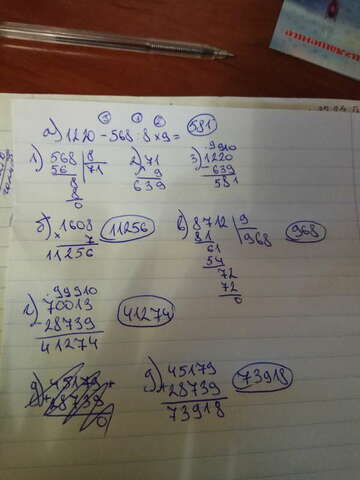 ③ ① ②
а) 1220 - 568 : 8 × 9 = 581
1) 568 | 8
56 71
8
8
0
2) 71
× 9
639
3) 1220
- 639
581
б) 1608
× 7
11256
11256
в) 8712 | 9
81 968
61
54
72
72
0
968
г) 70013
- 28739
41274
41274
д) 45179
+ 28739
д) 45179
+ 28739
73918
73918